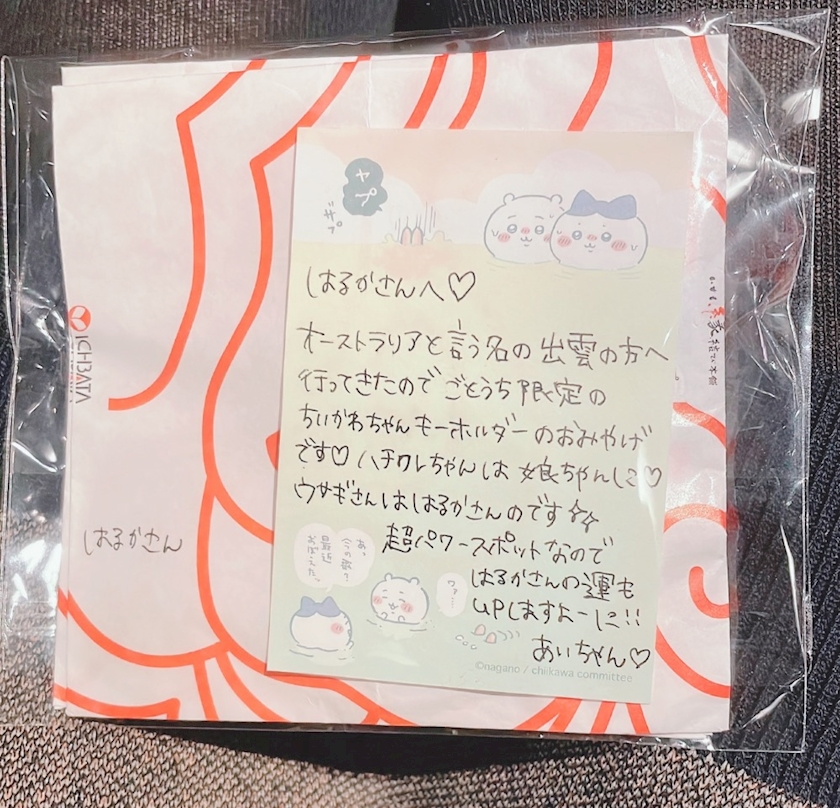 ヤペ
ザプ
はるかさんへ♡
オーストラリアと言う名の出雲の方へ
行ってきたので ごとうち限定の
ちいかわちゃんキーホルダーのおみやげ
です♡ ハチワレちゃんは 娘ちゃんに♡
ウサギさんははるかさんのです☆☆
超パワースポットなので
はるかさんの運も
UPしますよーに!!
あいちゃん♡
あっ
今の歌?
最近
おぼえたっ
ワァ…
©nagano / chiikawa committee
はるかさん
ICHIBATA